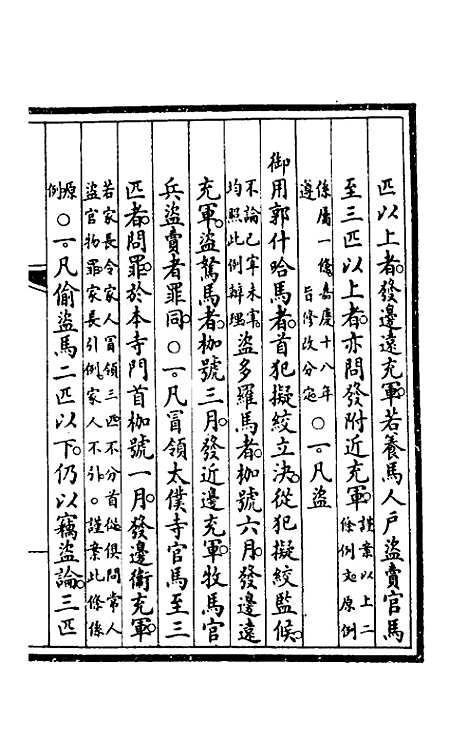 匹以上者發邊遠充軍若養馬人戶盜賣官馬
至三匹以上者亦問發附近充軍謹案以上二條例文原例
係屬一條嘉慶十八年遵旨修改分定○一凡盜
御用郭什哈馬者首犯擬絞立決從犯擬絞監候
不論已宰未宰均照此例辦理盜多羅馬者枷號六月發邊遠
充軍盜駑馬者枷號三月發近邊充軍牧馬官
兵盜賣者罪同○一凡冒領太僕寺官馬至三
匹者問罪於本寺門首枷號一月發邊衛充軍
若家長令家人冒領三匹不分首從俱問常人盜官物罪家長引例家人不引○謹案此條係
原例○一凡偷盜馬二匹以下仍以竊盜論三匹